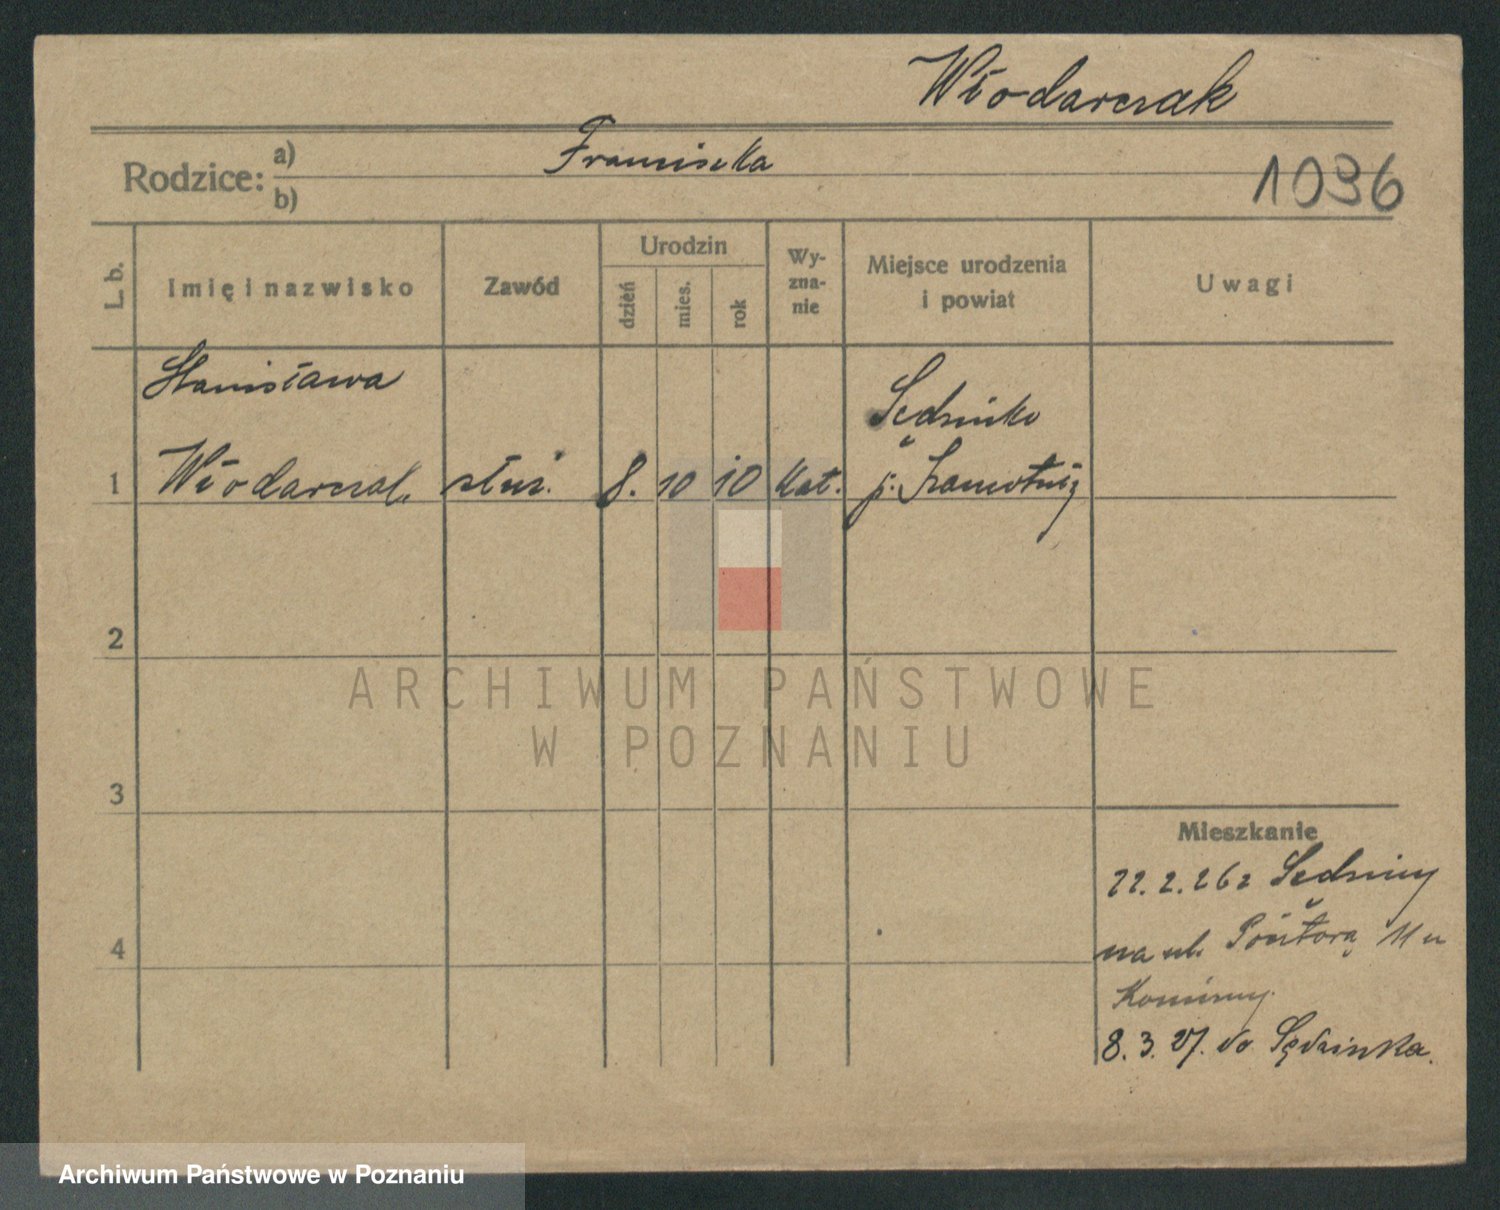 Włodarczak
Rodzice: a) Franciszka
b)
1036
L. b.
Imię i nazwisko
Zawód
Urodzin
dzień
mies.
rok
Wy-
zna-
nie
Miejsce urodzenia
i powiat
Uwagi
Stanisława
Sędzinko
1 Włodarczak służ. 8. 10 10 kat. p. Szamotuły
2
3
4
Mieszkanie
22. 2. 26 z Sędziny
na ul. 11 u
8. 3. 27. do Sędzinka.
ARCHIWUM PAŃSTWOWE
W POZNANIU
Archiwum Państwowe w Poznaniu